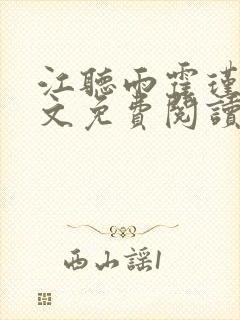 江聽雨霆瑾
文免費閱讀
西山謠1